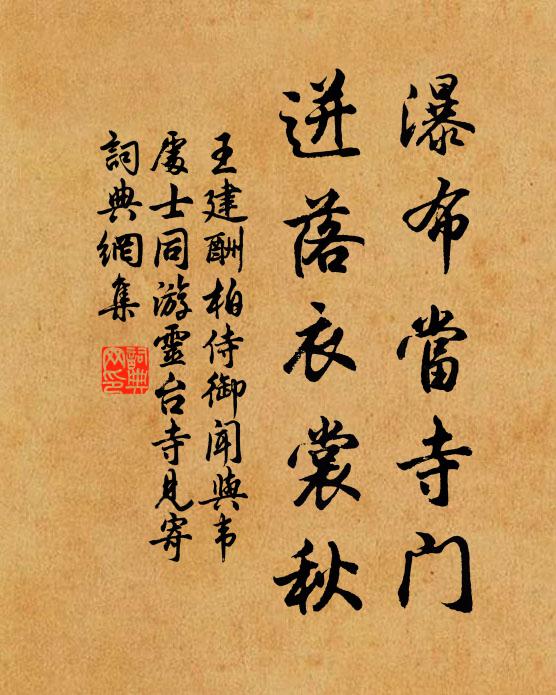 瀑布當寺门
迸落衣裳秋
王建酬柏侍御闻與韦
處士同游靈台寺見寄
詞典網集
詞典网印